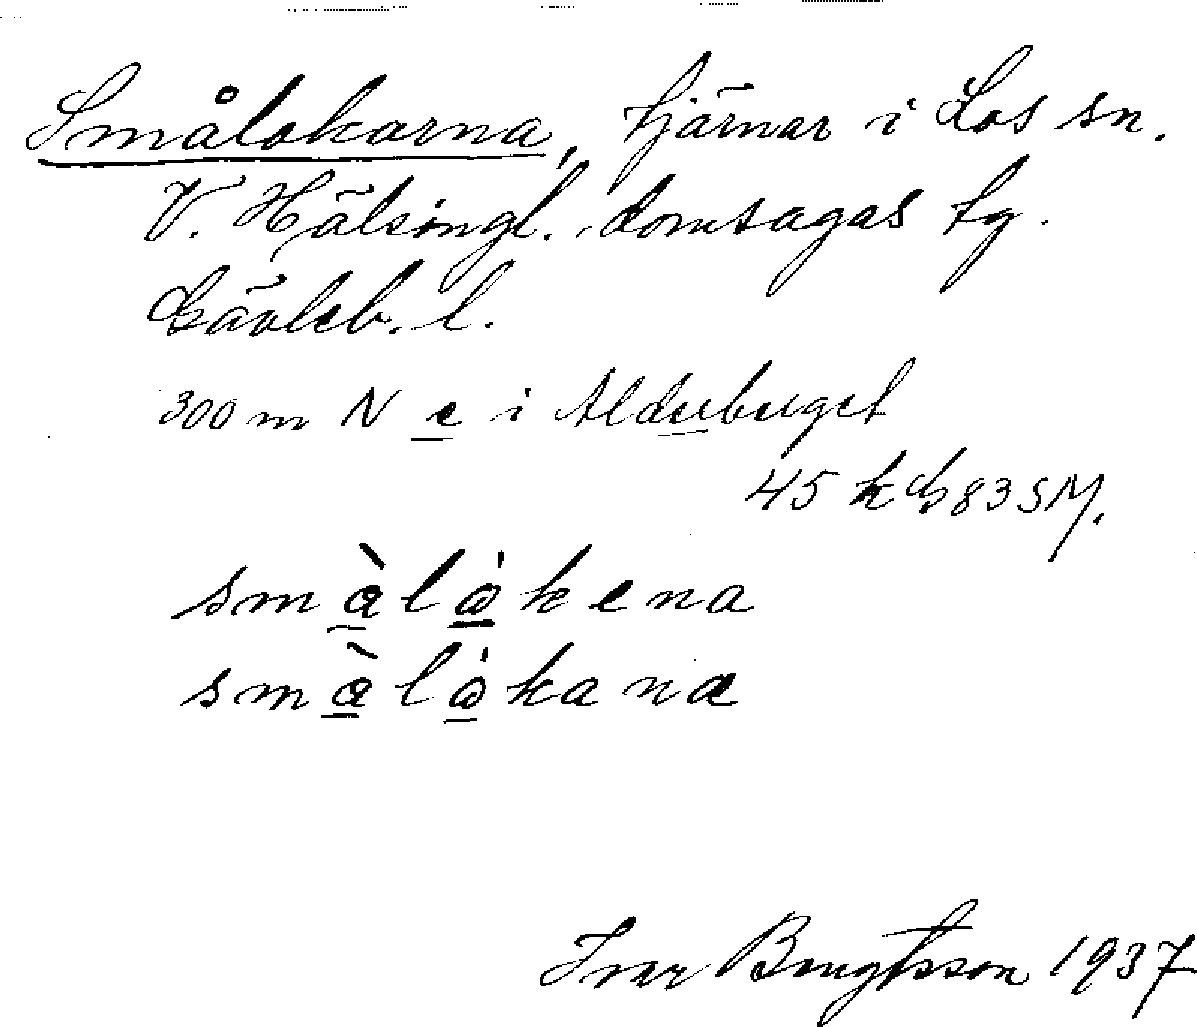 Smålokarna, tjärnar i Los sn.
V. Hälsingl. domsagas tg.
Gävleb. l.
300 m N e i Aldubuget
45 k G 83 SM.
smålokena
smålokana
Ivar Bengtsson 1937